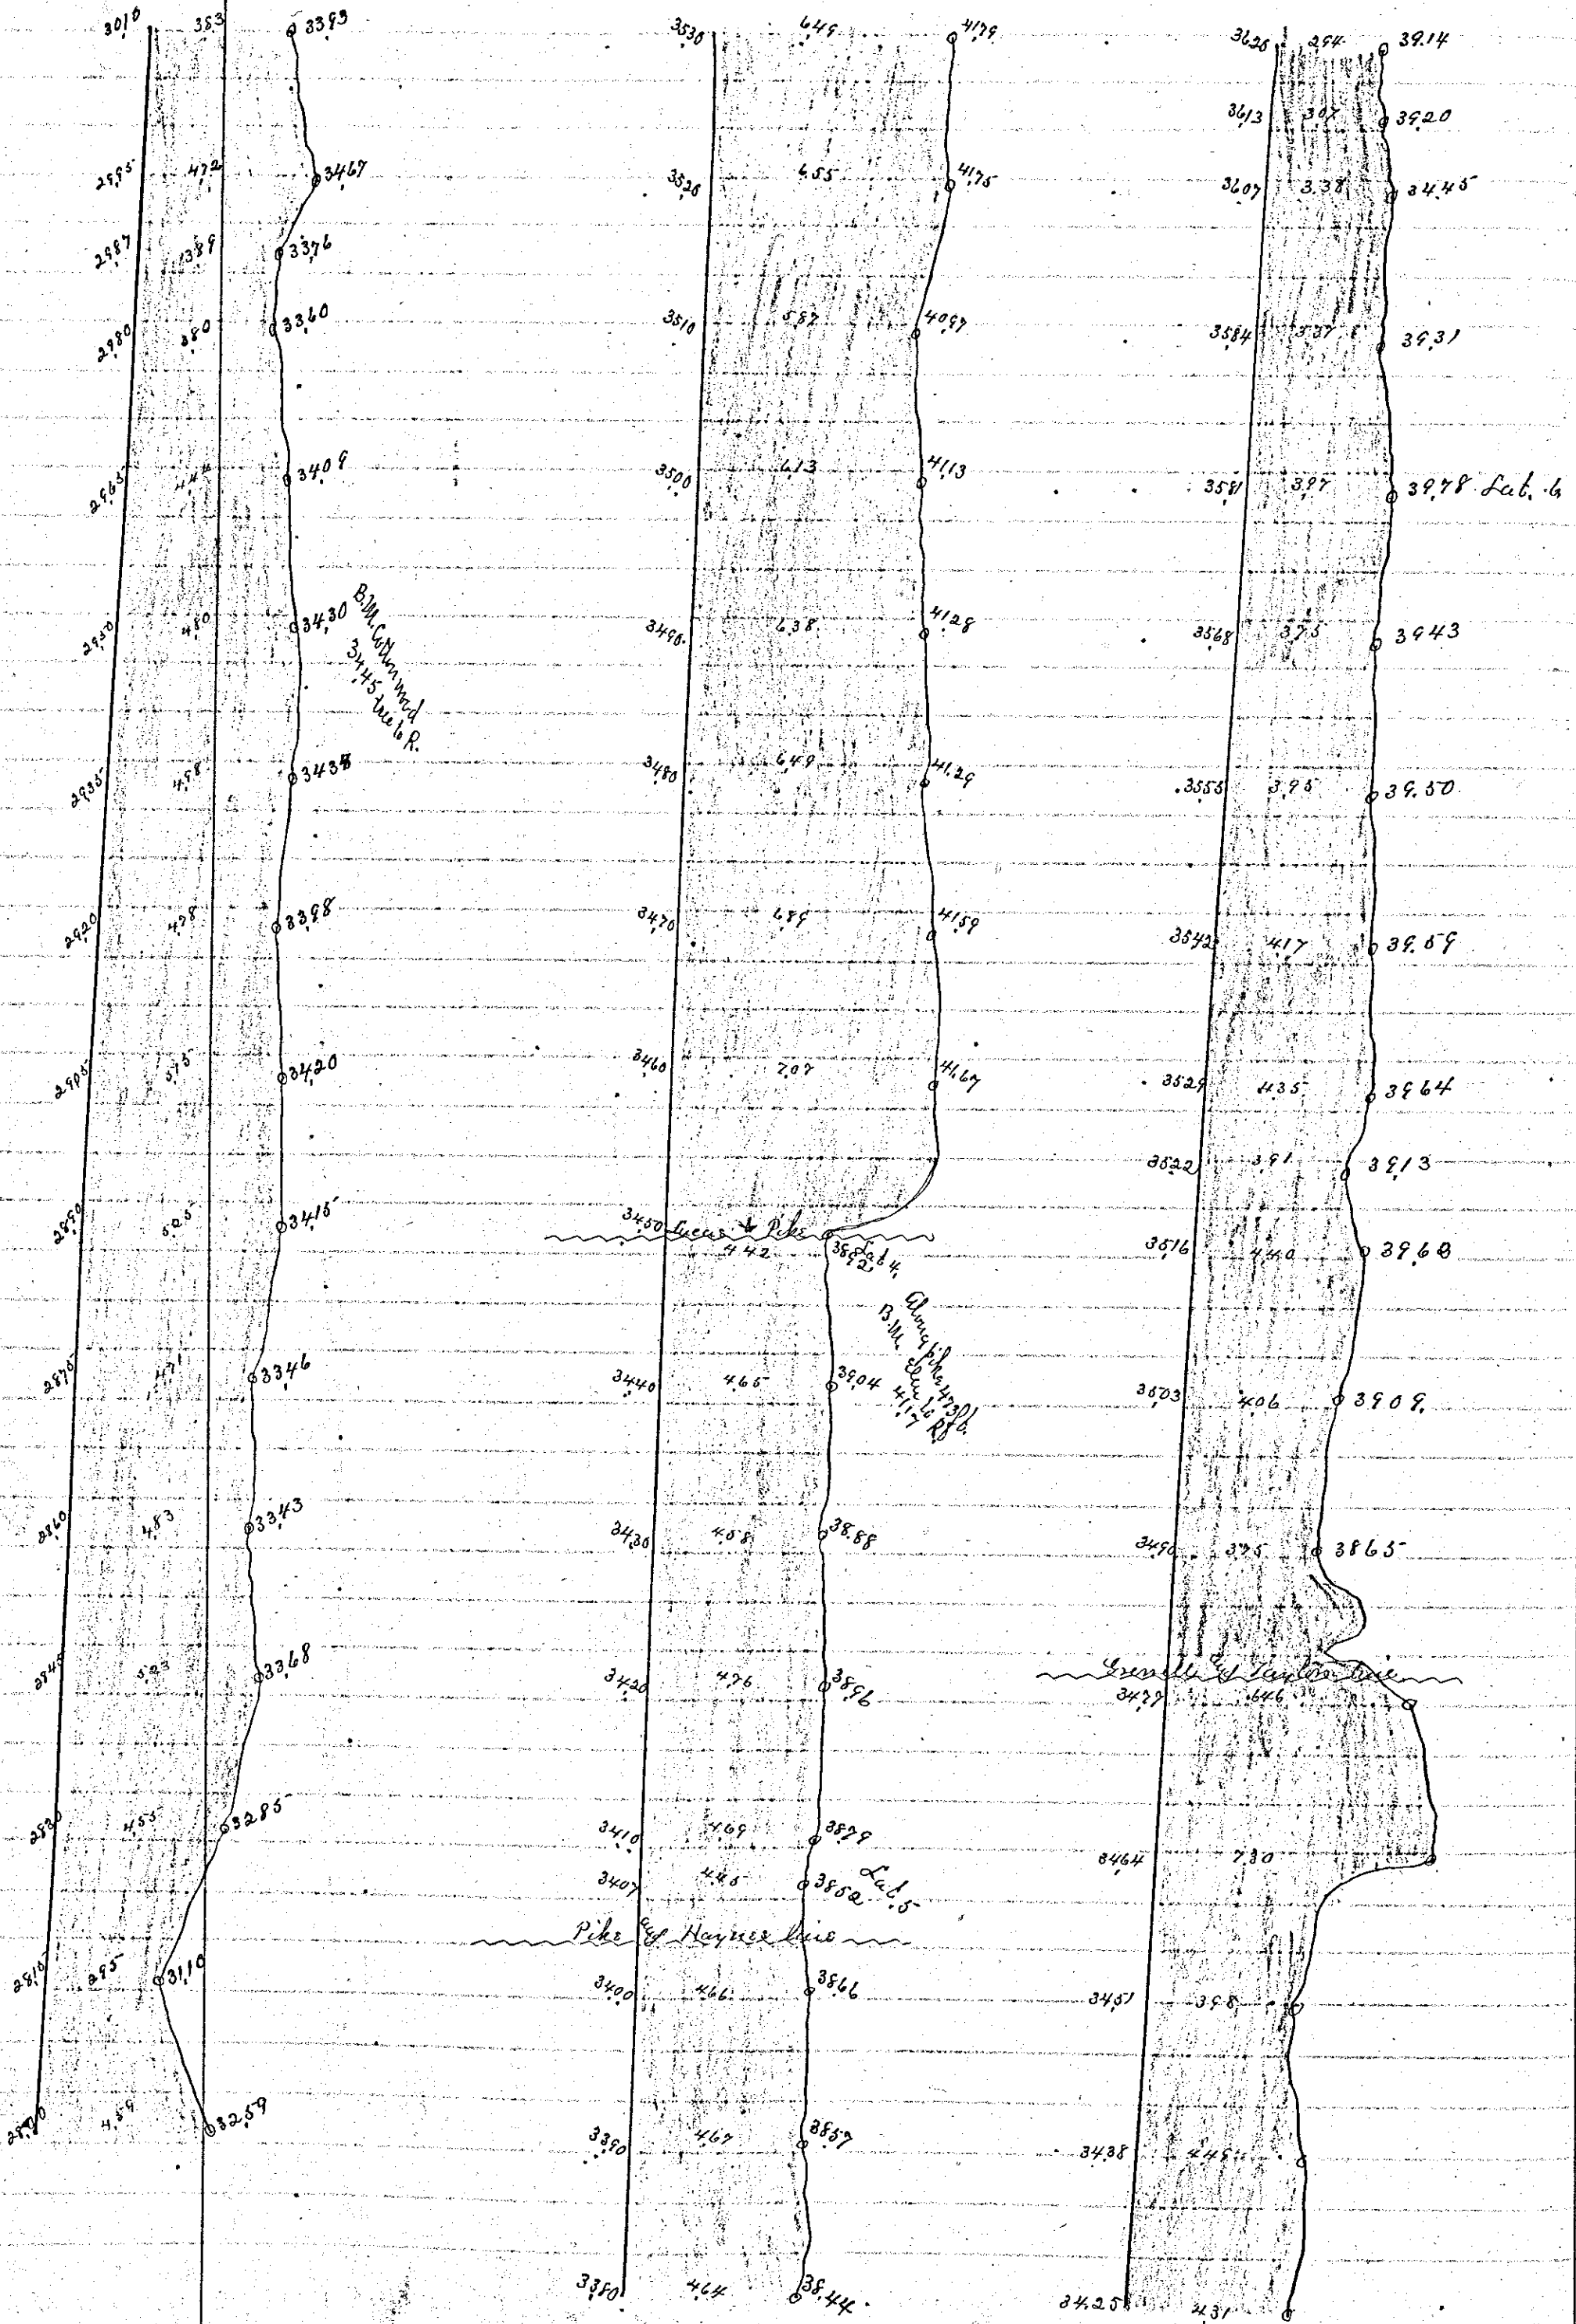 3010 383 3393
2995 472 3467
2987 389 3376
2980 380 3360
2965 3409
2950 480 3430
B.M. Cottonwood
3445 tree to R.
2935 498 3438
2920 478 3398
2905 515 3420
2890 525 3415
2875 471 3346
2860 483 3343
2845 523 3368
2830 455 3285
2815 295 3110
459 3259
3530 649 4179
3520 655 4175
3510 587 4097
3500 613 4113
3490 638 4128
3480 649 4129
3470 689 4159
3460 707 4167
3450 & Pike
442 3892 Lat. 4.
3440 465 3904
B.M. Elm
3430 458 38.88
3420 476 3896
3410 469 3879
3407 445 3852 Lat. 5
Pike & Hayner line
3400 466 3866
3390 467 3857
3380 464 38.44
294 39.14
3613 307 3920
3607 3.38 34.45
3584 39.31
3581 397 3978 Lat. 6
3568 375 3943
3555 395 39.50
3542 417 39.59
3529 435 3964
3522 391 3913
3516 440 3960
3503 406 3909
3490 375 3865
& Taylor line
3477 646
3464 730
3451 398
3438 445
34.25 431